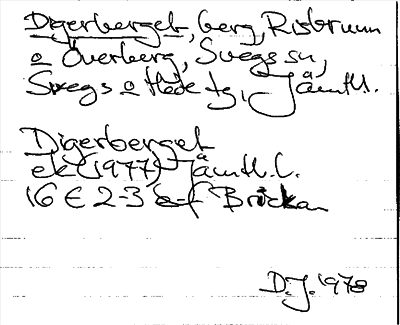 Digerberget, berg, Risbrunn
o Överberg, Svegs sn,
Svegs o Hede tg, Jämtl.
Digerberget
ek (1977) Jämtl. l.
16 E 2-3 e-f Brickan
D.J. 1978